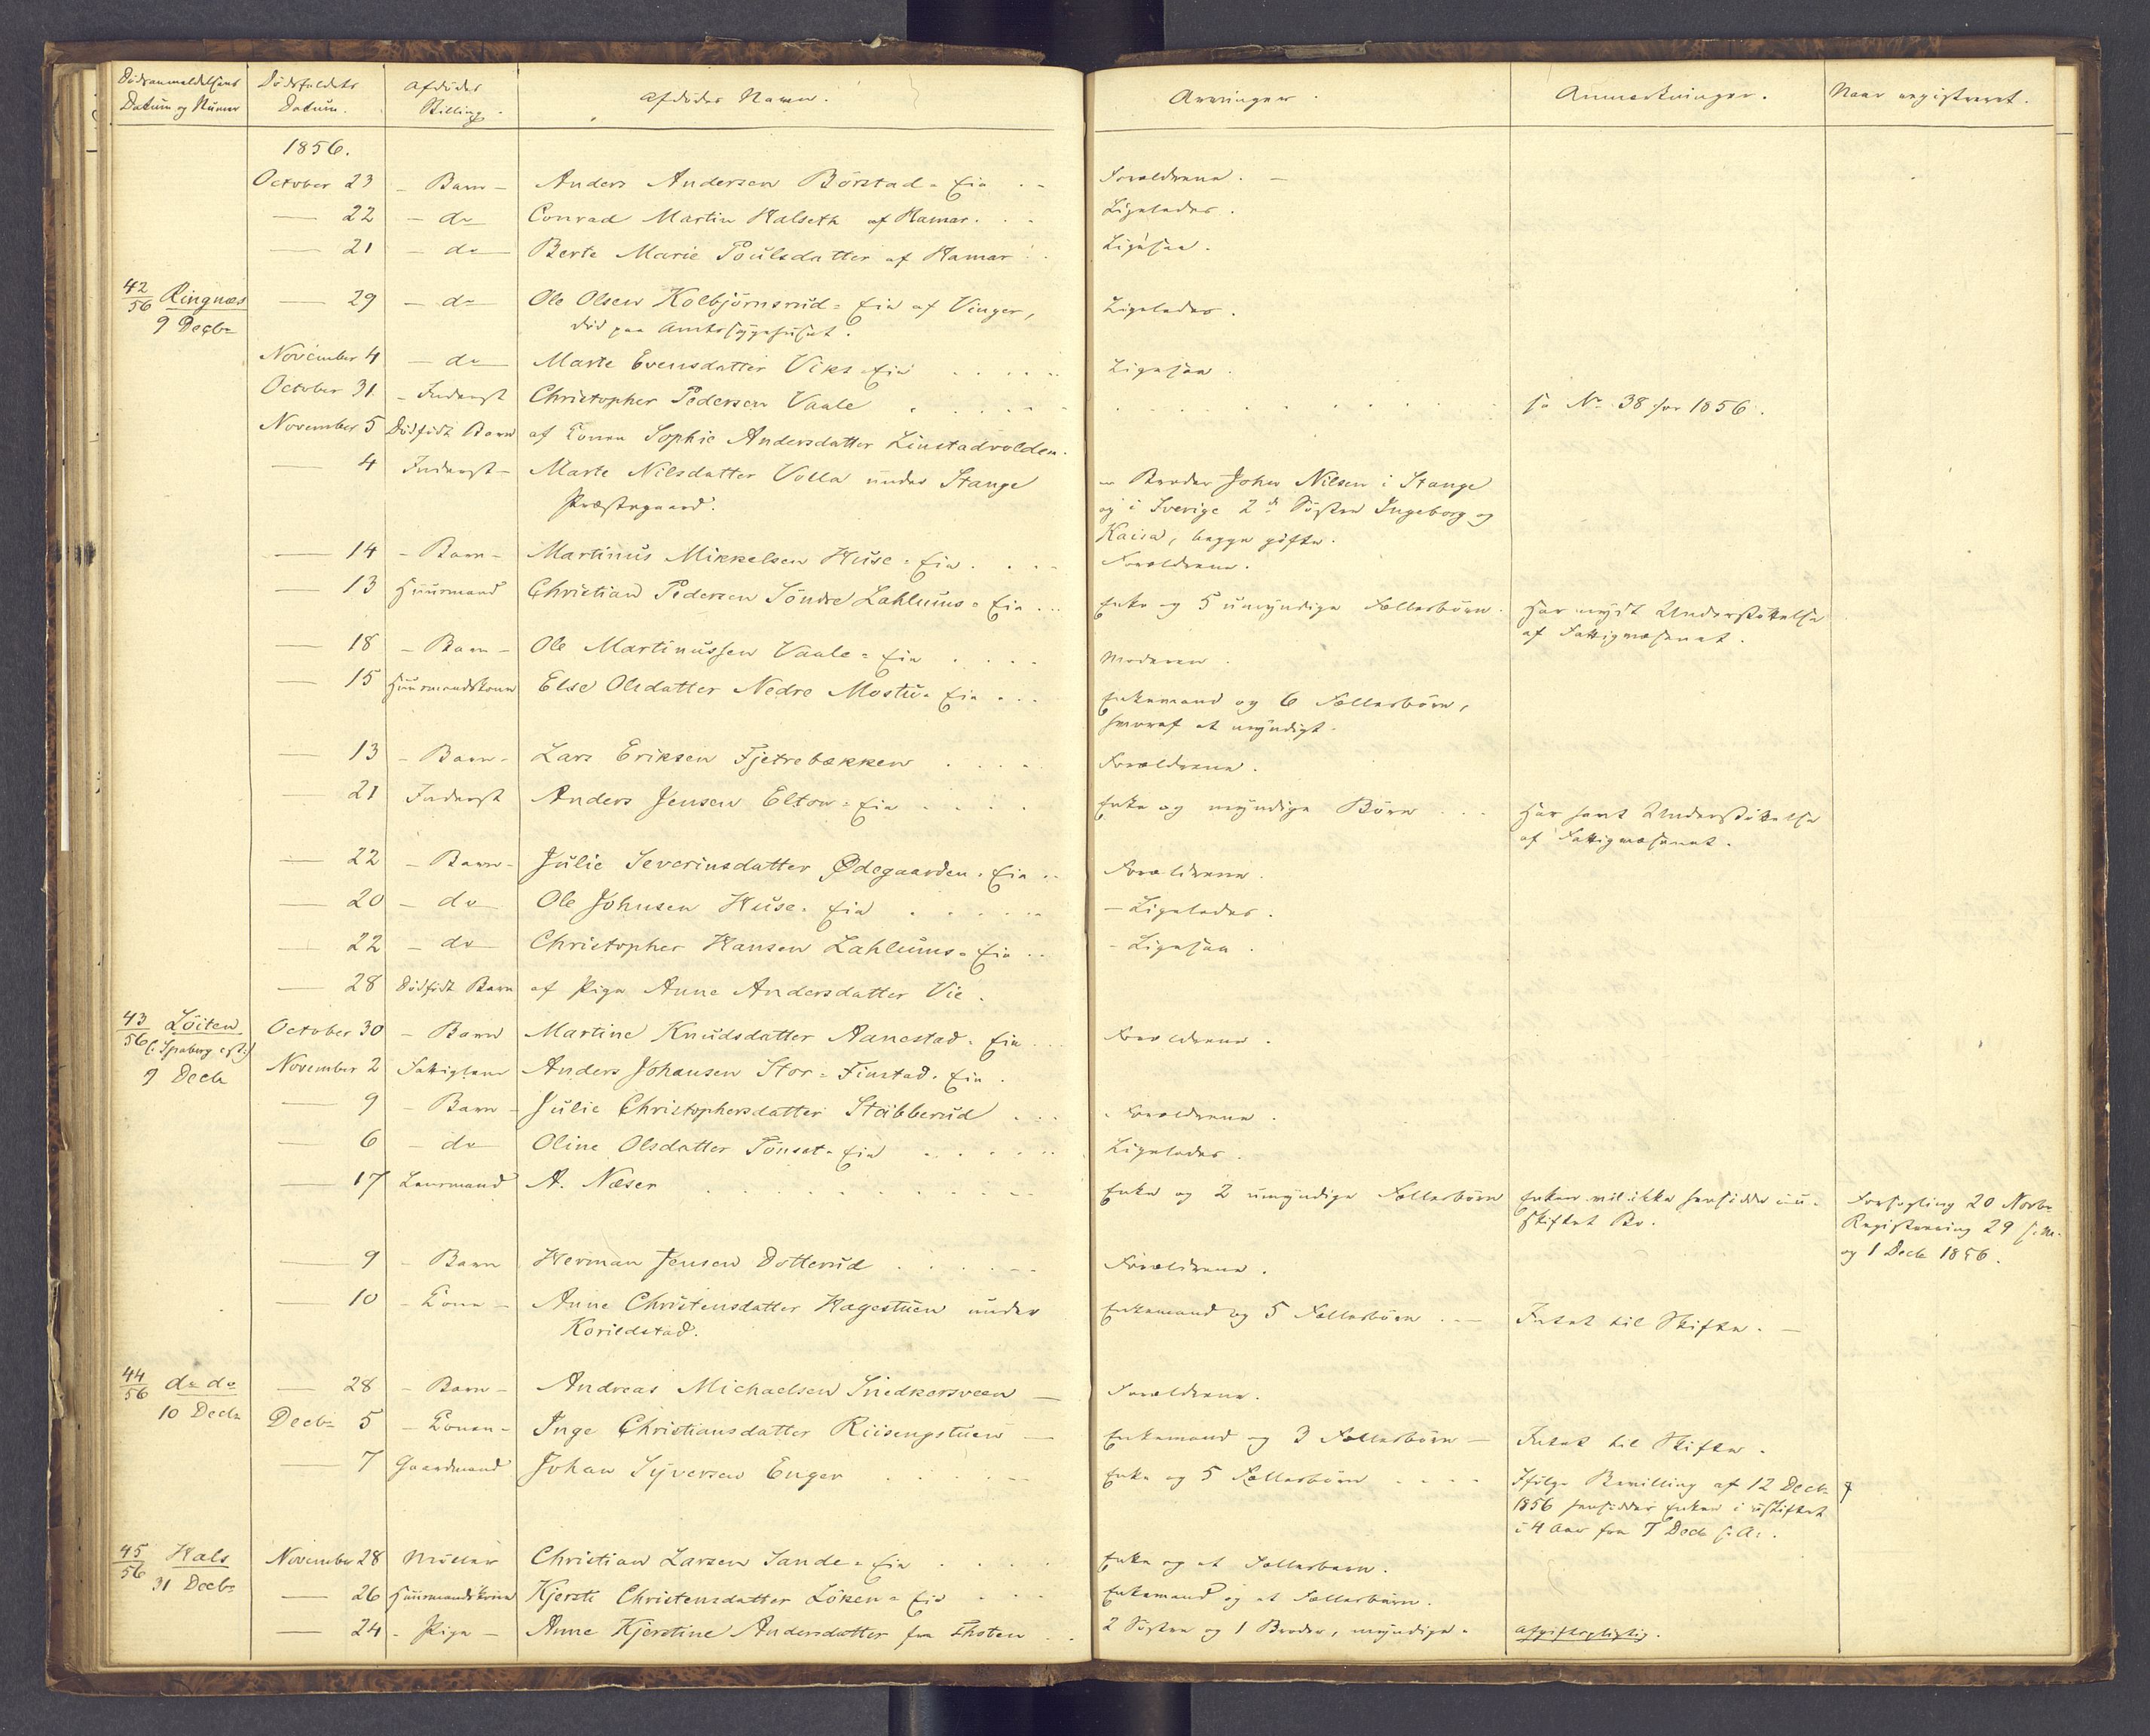 Dödsanmeldelsens Datum og Numer | Dödsfaldets Datum. | Afdödes Stilling. | Afdödes Navn. | Arvinger. | Anmærkninger. | Naar registreret.
1856.
October 23 - Barn - Anders Andersen Börstad-Eie . . Forældrene. -
— 22 - do Conrad Martin Halseth af Hamar. . . Ligeledes.
— 21 - do Berte Marie Poulsdatter af Hamar . . Ligesaa.
42/56 Ringnæs — 29 - do Ole Olsen Kolbjörnsrud-Eie af Vinger, Ligeledes.
9 Decbr död paa Amtssygehuset.
November 4 - do Marte Evensdatter Viks-Eie . . . . Ligesaa.
October 31. - Inderst Christopher Pedersen Vaale . . . . . se No 38 for 1856.
November 5 Dödfödt Barn af Konen Sophie Andersdatter Linstadvolden.
— 4 Inderst - Marte Nilsdatter Volla under Stange - Broder Johan Nilsen i Stange
Præstegaard. og i Sverige 2de Söstre Ingeborg og
Kaisa, begge gifte.
— 14 - Barn - Martinus Mikkelsen Huse-Eie . . . Forældrene.
— 13 Huusmand Christian Pedersen Söndre Lahlums-Eie . . . Enke og 5 umyndige Fællesbörn. Har nydt Understöttelse
af Fattigvæsenet.
— 18 - Barn - Ole Martinussen Vaale-Eie . . . . Moderen.
— 15 Huusmandskone Else Olsdatter Nedre Mostu-Eie . . . Enkemand og 6 Fællesbörn,
hvoraf et myndigt.
— 13 - Barn - Lars Eriksen Fjetrebækken . . . . Forældrene.
— 21 Inderst Anders Jensen Elton-Eie . . . . Enke og myndige Börn . . . Har havt Understöttelse
af Fattigvæsenet.
— 22 - Barn - Julie Severinsdatter Ødegaarden-Eie . . Forældrene.
— 20 - do Ole Johnsen Huse-Eie . . . . . - Ligeledes.
— 22 - do Christopher Hansen Lahlums-Eie . . - Ligesaa.
— 28 Dödfödt Barn af Pige Anne Andersdatter Vie.
43/56 Löiten October 30 - Barn Martine Knudsdatter Aanestad-Eie . . . Forældrene.
9 Decbr November 2 Fattiglem Anders Johansen Stor-Finstad-Eie.
— 9 - Barn - Julie Christophersdatter Stabberud . . . . Forældrene.
— 6 - do Oline Olsdatter Tönset-Eie . . . . . Ligeledes.
— 17 Leensmand A. Næser . . . . . . . . Enke og 2 umyndige Fællesbörn Enken vil ikke hensidde i u- Forsegling 20 Novbr
skiftet Bo. Registrering 29 s. M.
og 1 Decbr 1856.
— 9 - Barn Herman Jensen Dotterud . . . . . Forældrene.
— 10 - Kone - Anne Christensdatter Hagestuen under Enkemand og 5 Fællesbörn . — Intet til Skifte. —
Korildstad.
44/56 do do — 28 - Barn - Andreas Michaelsen Snedkersveen — Forældrene.
10 Decbr Decbr 5 - Konen - Inge Christiansdatter Riisengstuen — Enkemand og 3 Fællesbörn — Intet til Skifte.
— 7 Gaardmand Johan Syversen Enger . . . . . Enke og 5 Fællesbörn . . . . Ifölge Bevilling af 12 Decbr
1856 hensidder Enken i uskiftet
i 4 Aar fra 7 Decbr s. A.
45/56 Hals November 28 Möller Christian Larsen Sande-Eie . . . . Enke og et Fællesbarn.
31 Decbr — 26 Huusmandskone Kjersti Christensdatter Löken-Eie . . . Enkemand og et Fællesbarn.
— 24 - Pige - Anne Kjerstine Andersdatter fra . . 2 Söstre og 1 Broder, myndige. Afgiftspligtig.